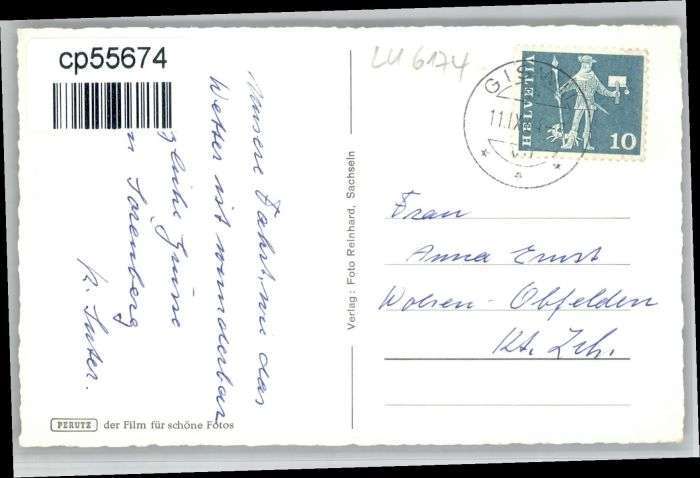 cp55674
LU 6174
HELVETIA
10
GIS
11.IX
Unsere Fahrt wie das
Wetter ist wunderbar
liche Grüsse
Sörenberg
K. Suter.
Frau
Anna Ernst
Wolsen-Obfelden
Kt. Zch.
Verlag: Foto Reinhard, Sachseln
PERUTZ der Film für schöne Fotos